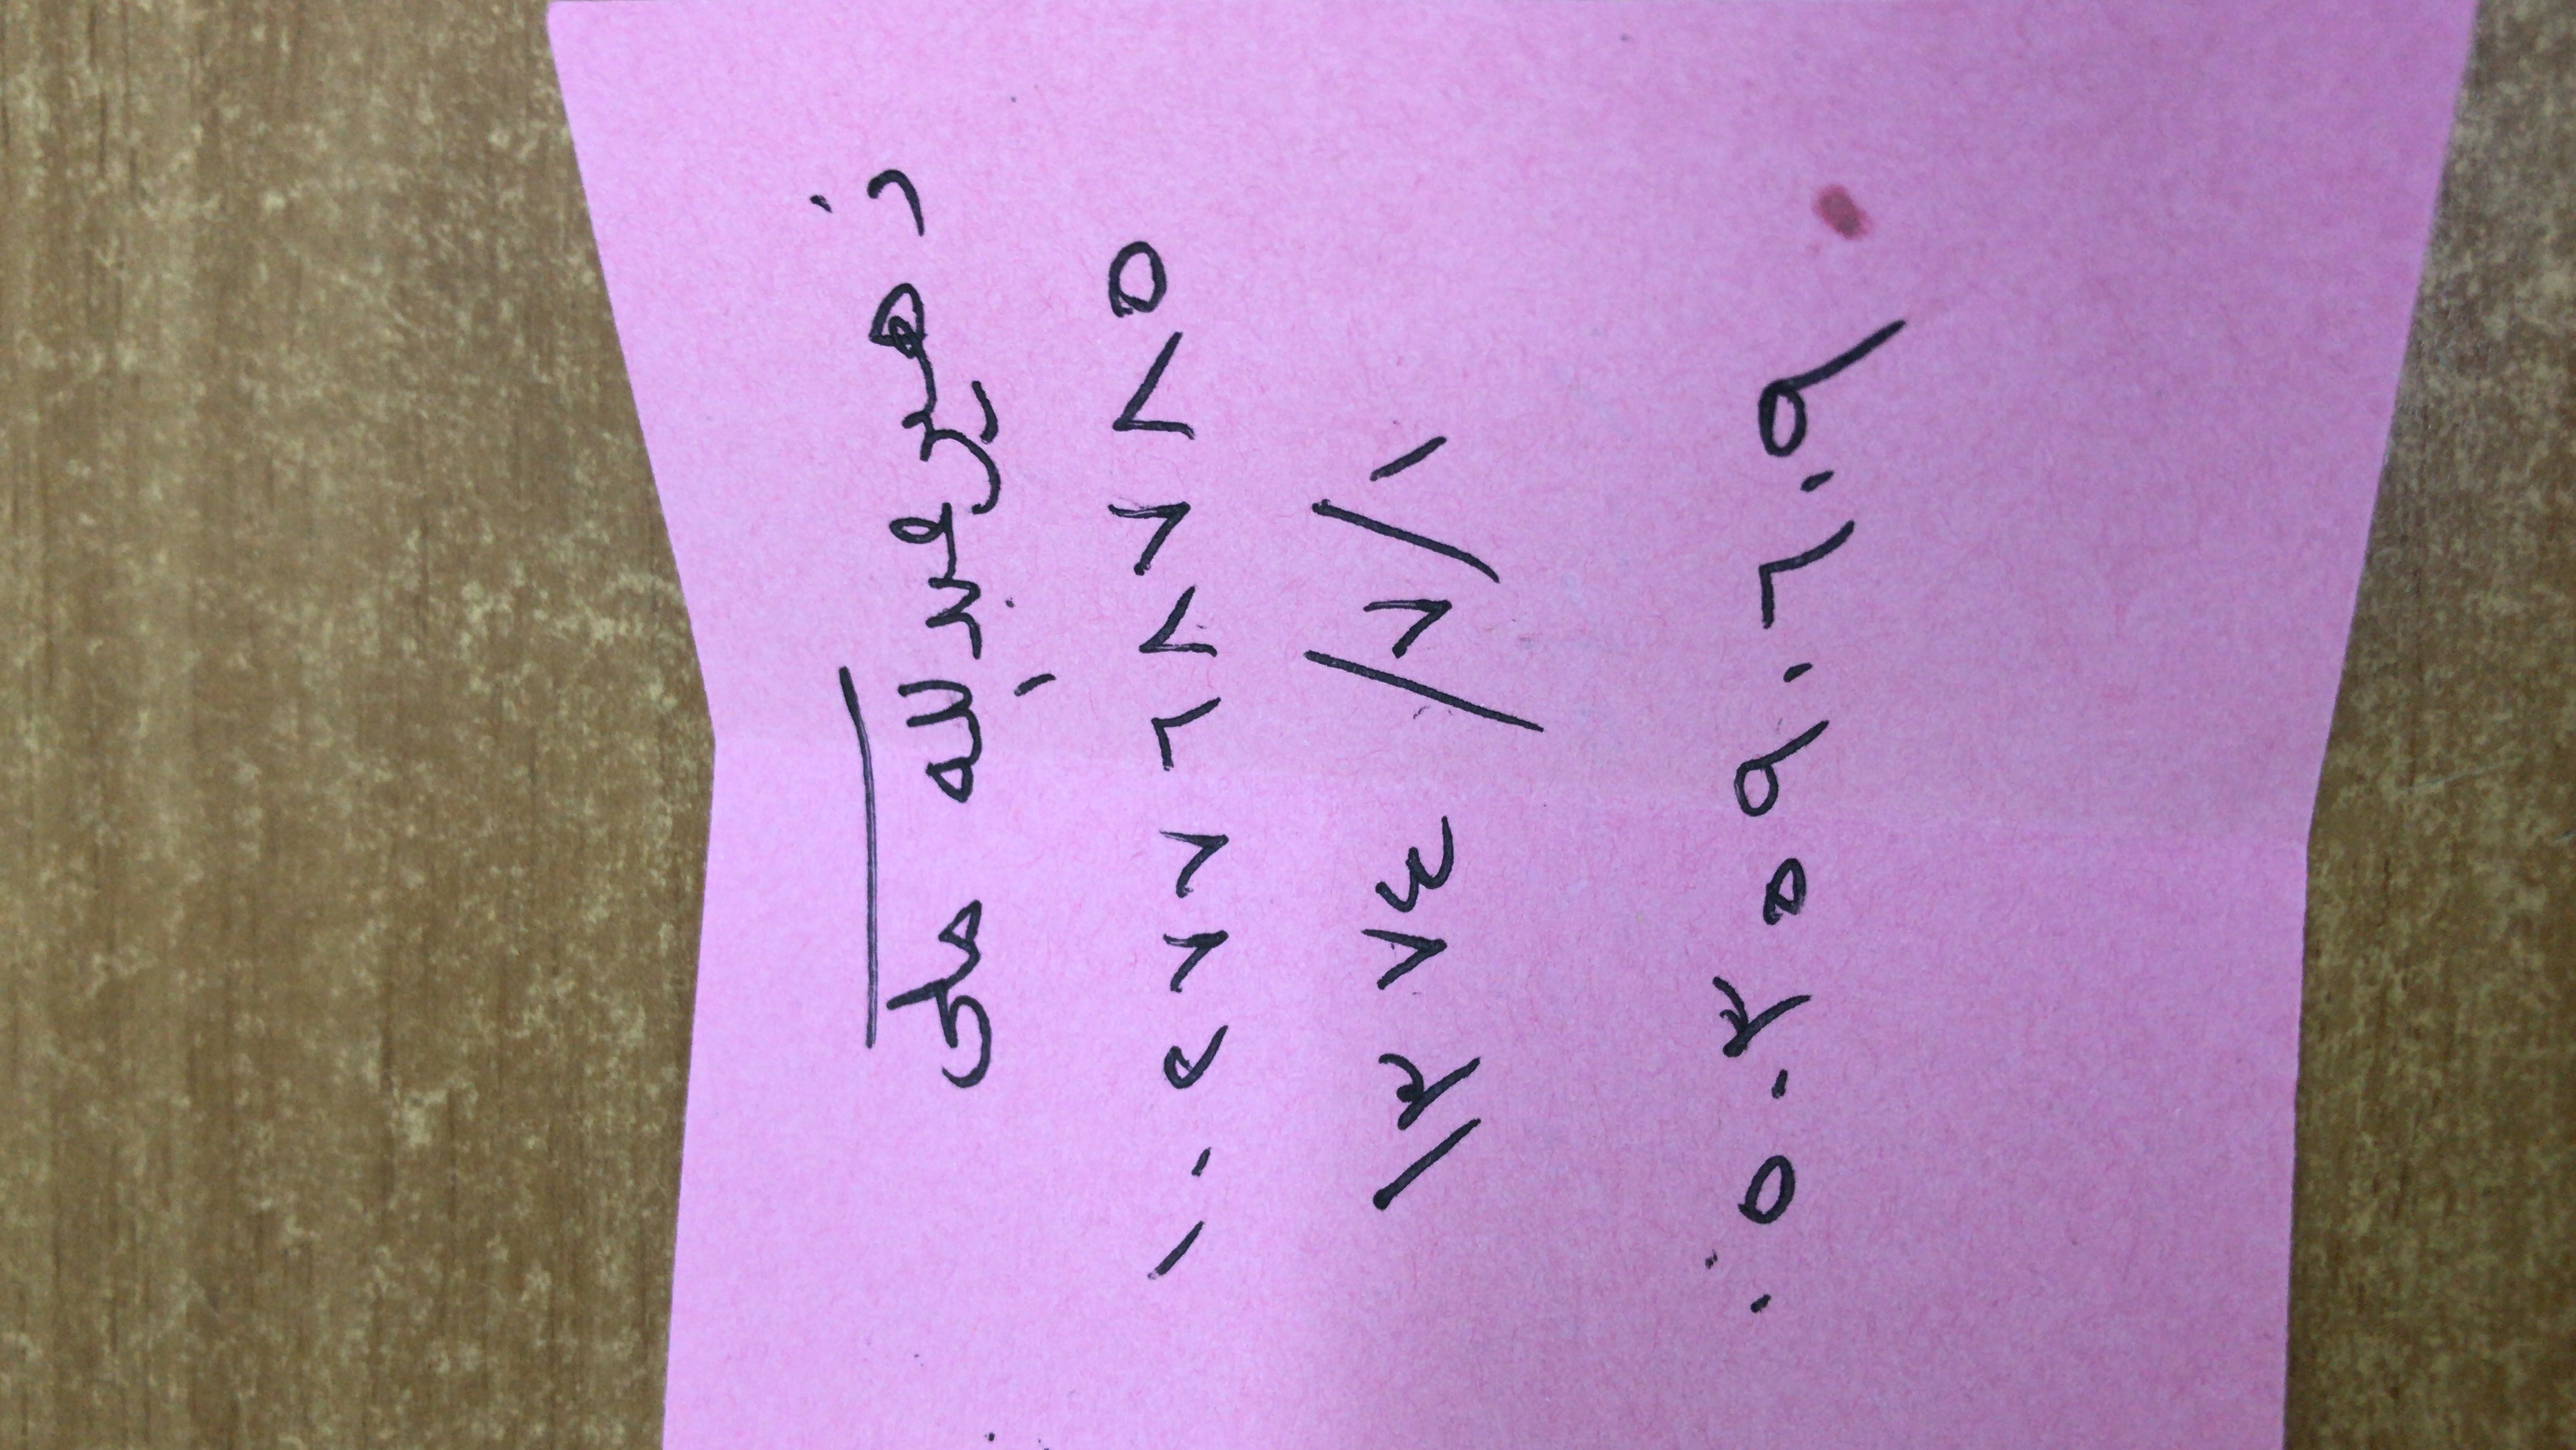 زهير عبدالله مكي
١٠٢٧٧٦٨٧٨٥
١/٧/١٣٧٤
٠٥٠٣٥٩٠٦٠٩